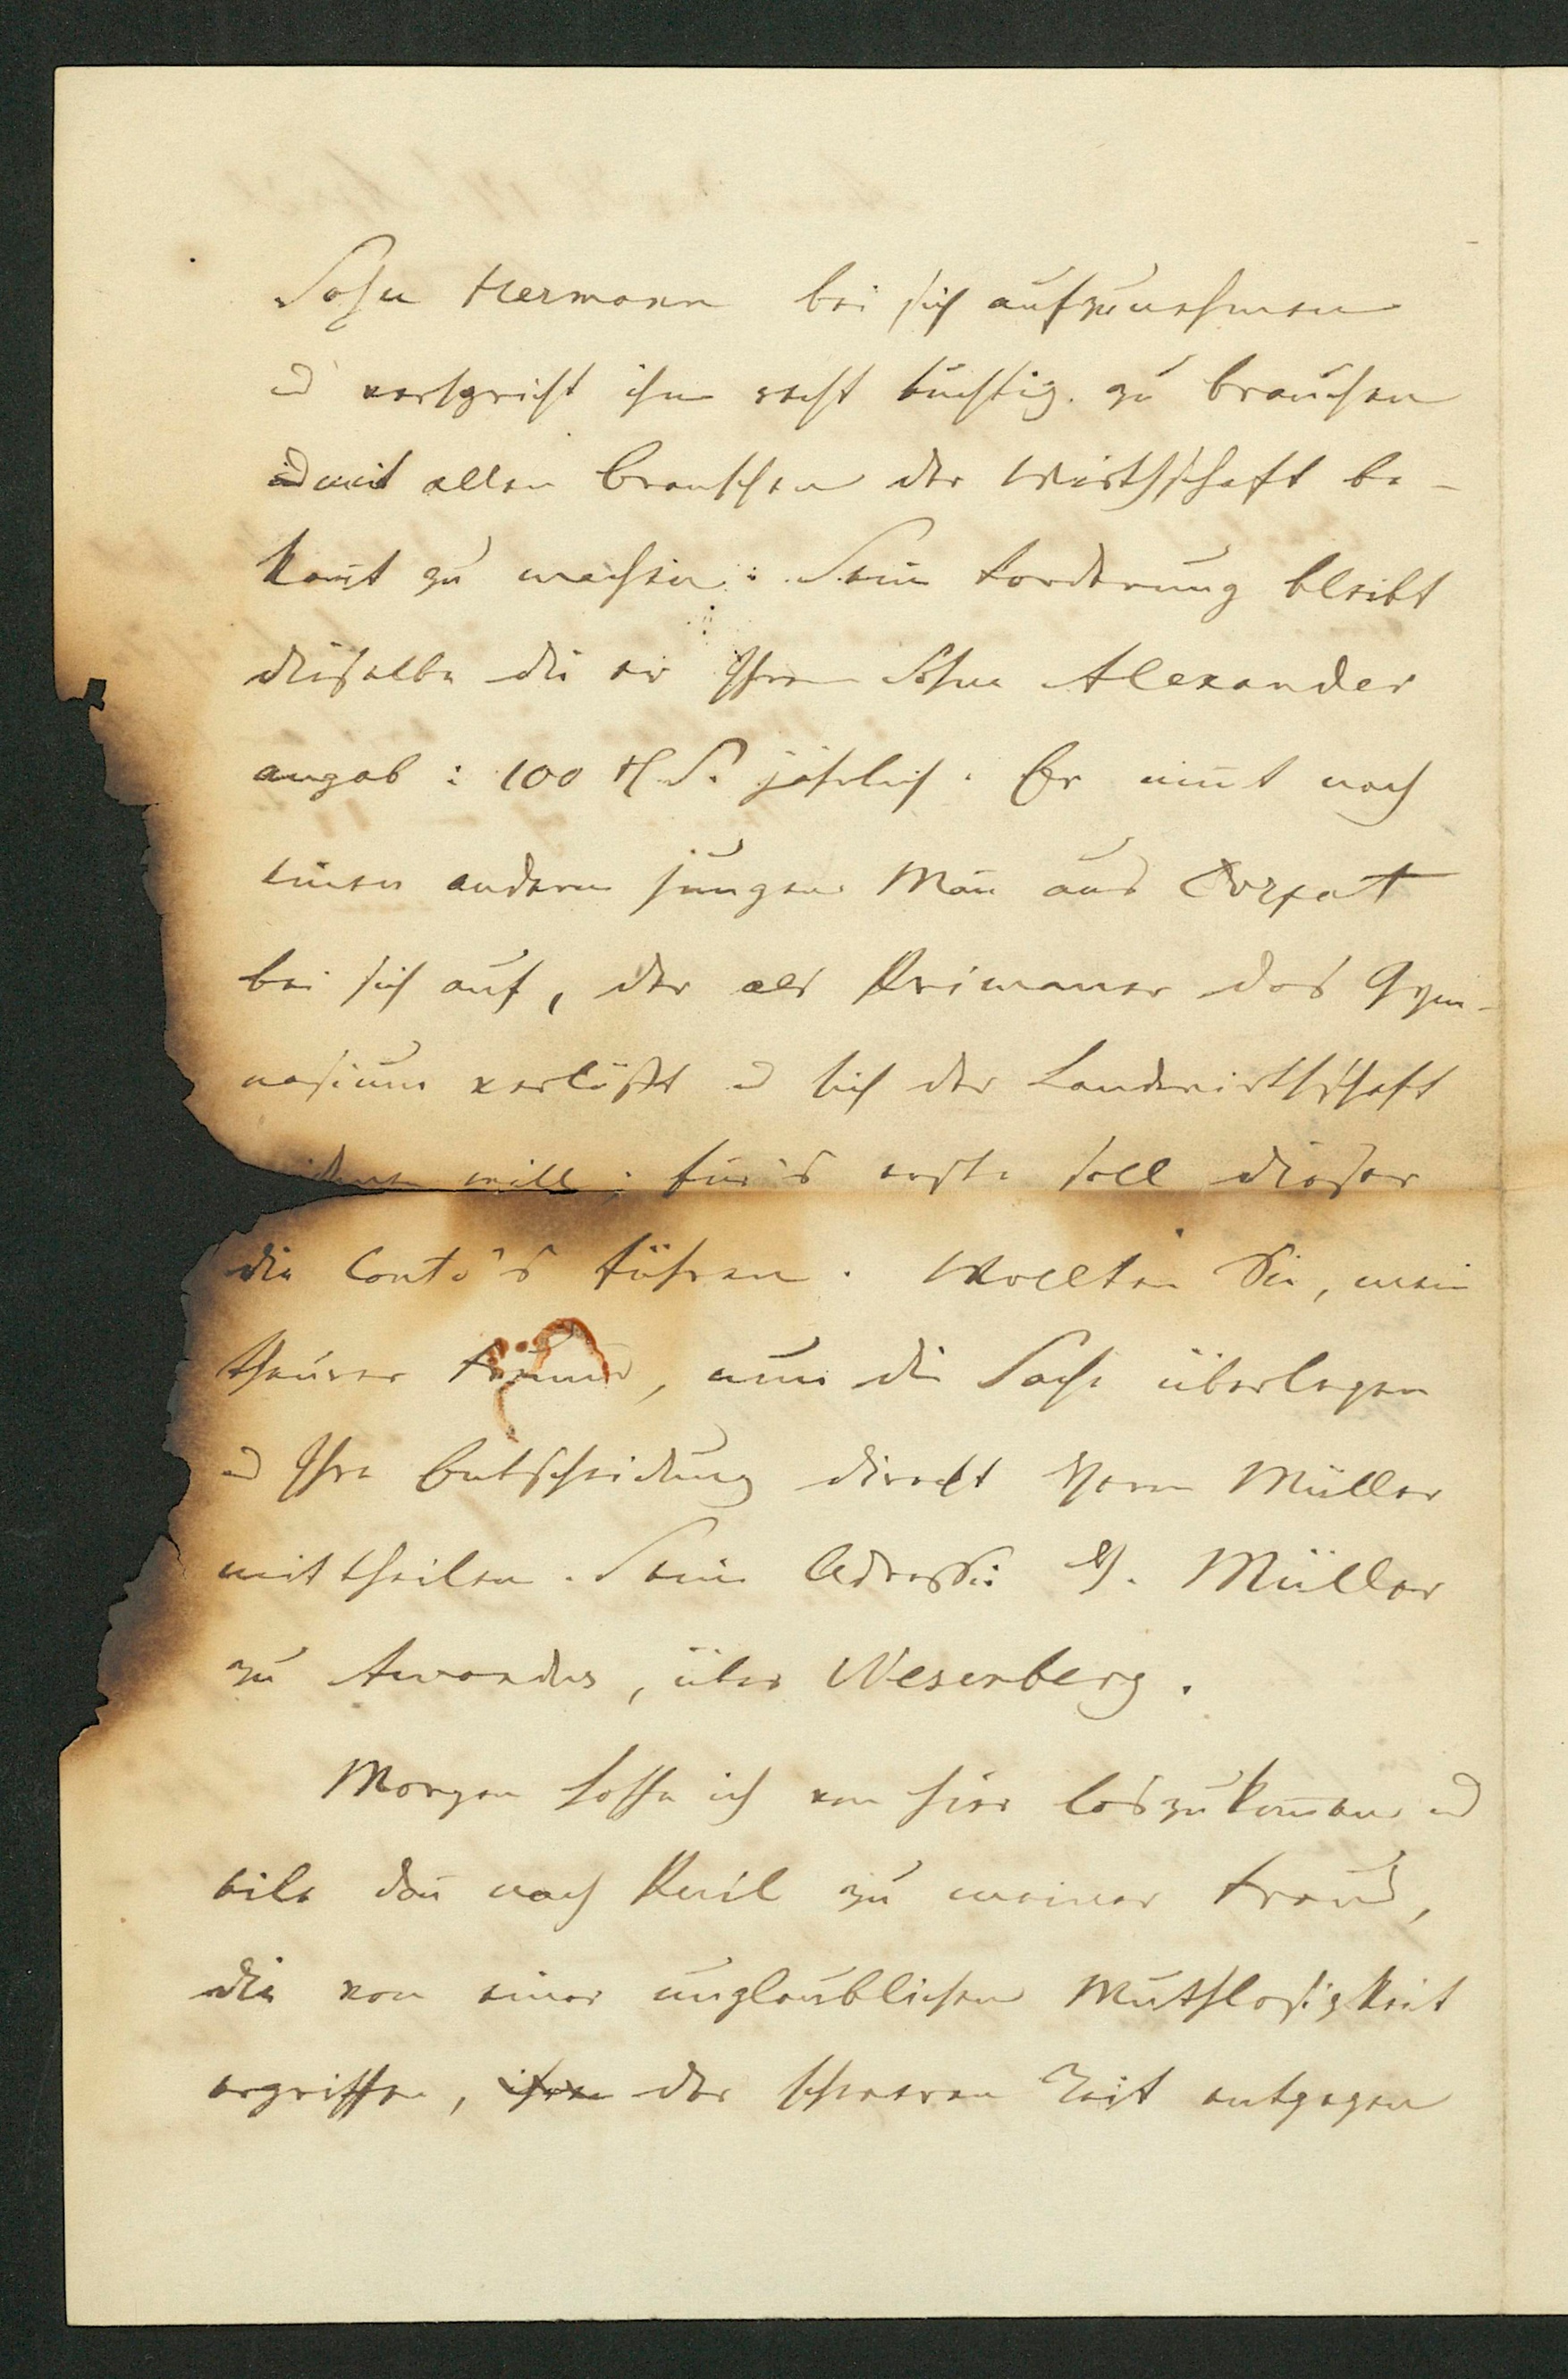 Sohn Hermann bei sich aufzunehmen
u verspricht ihn recht tüchtig zu brauchen
u mit allen Branchen der Wirthschaft be-
kan̅t zu machen: Seine Forderung bleibt
dieselbe die er Ihrem Sohne Alexander
angab: 100 R. S. jährlich. Er nim̅t noch
einen anderen jungen Man̅ aus Dorpat
bei sich auf, der als Primaner das Gym-
nasium verläßt u sich der Landwirthschaft
will; für's erste soll dieser
die Conto's führen. Wollten Sie, mein
theurer Freund, nun die Sache überlegen
u Ihre Entscheidung direct Herrn Müller
mittheilen. Seine Adresse: H. Müller
zu Awandus, über Wesenberg.
Morgen hoffe ich von hier loszukom̅en u
eile dan̅ nach Kuil zu meiner Frau,
die von einer unglaublichen Muthlosigkeit
ergriffen, der schweren Zeit entgegen